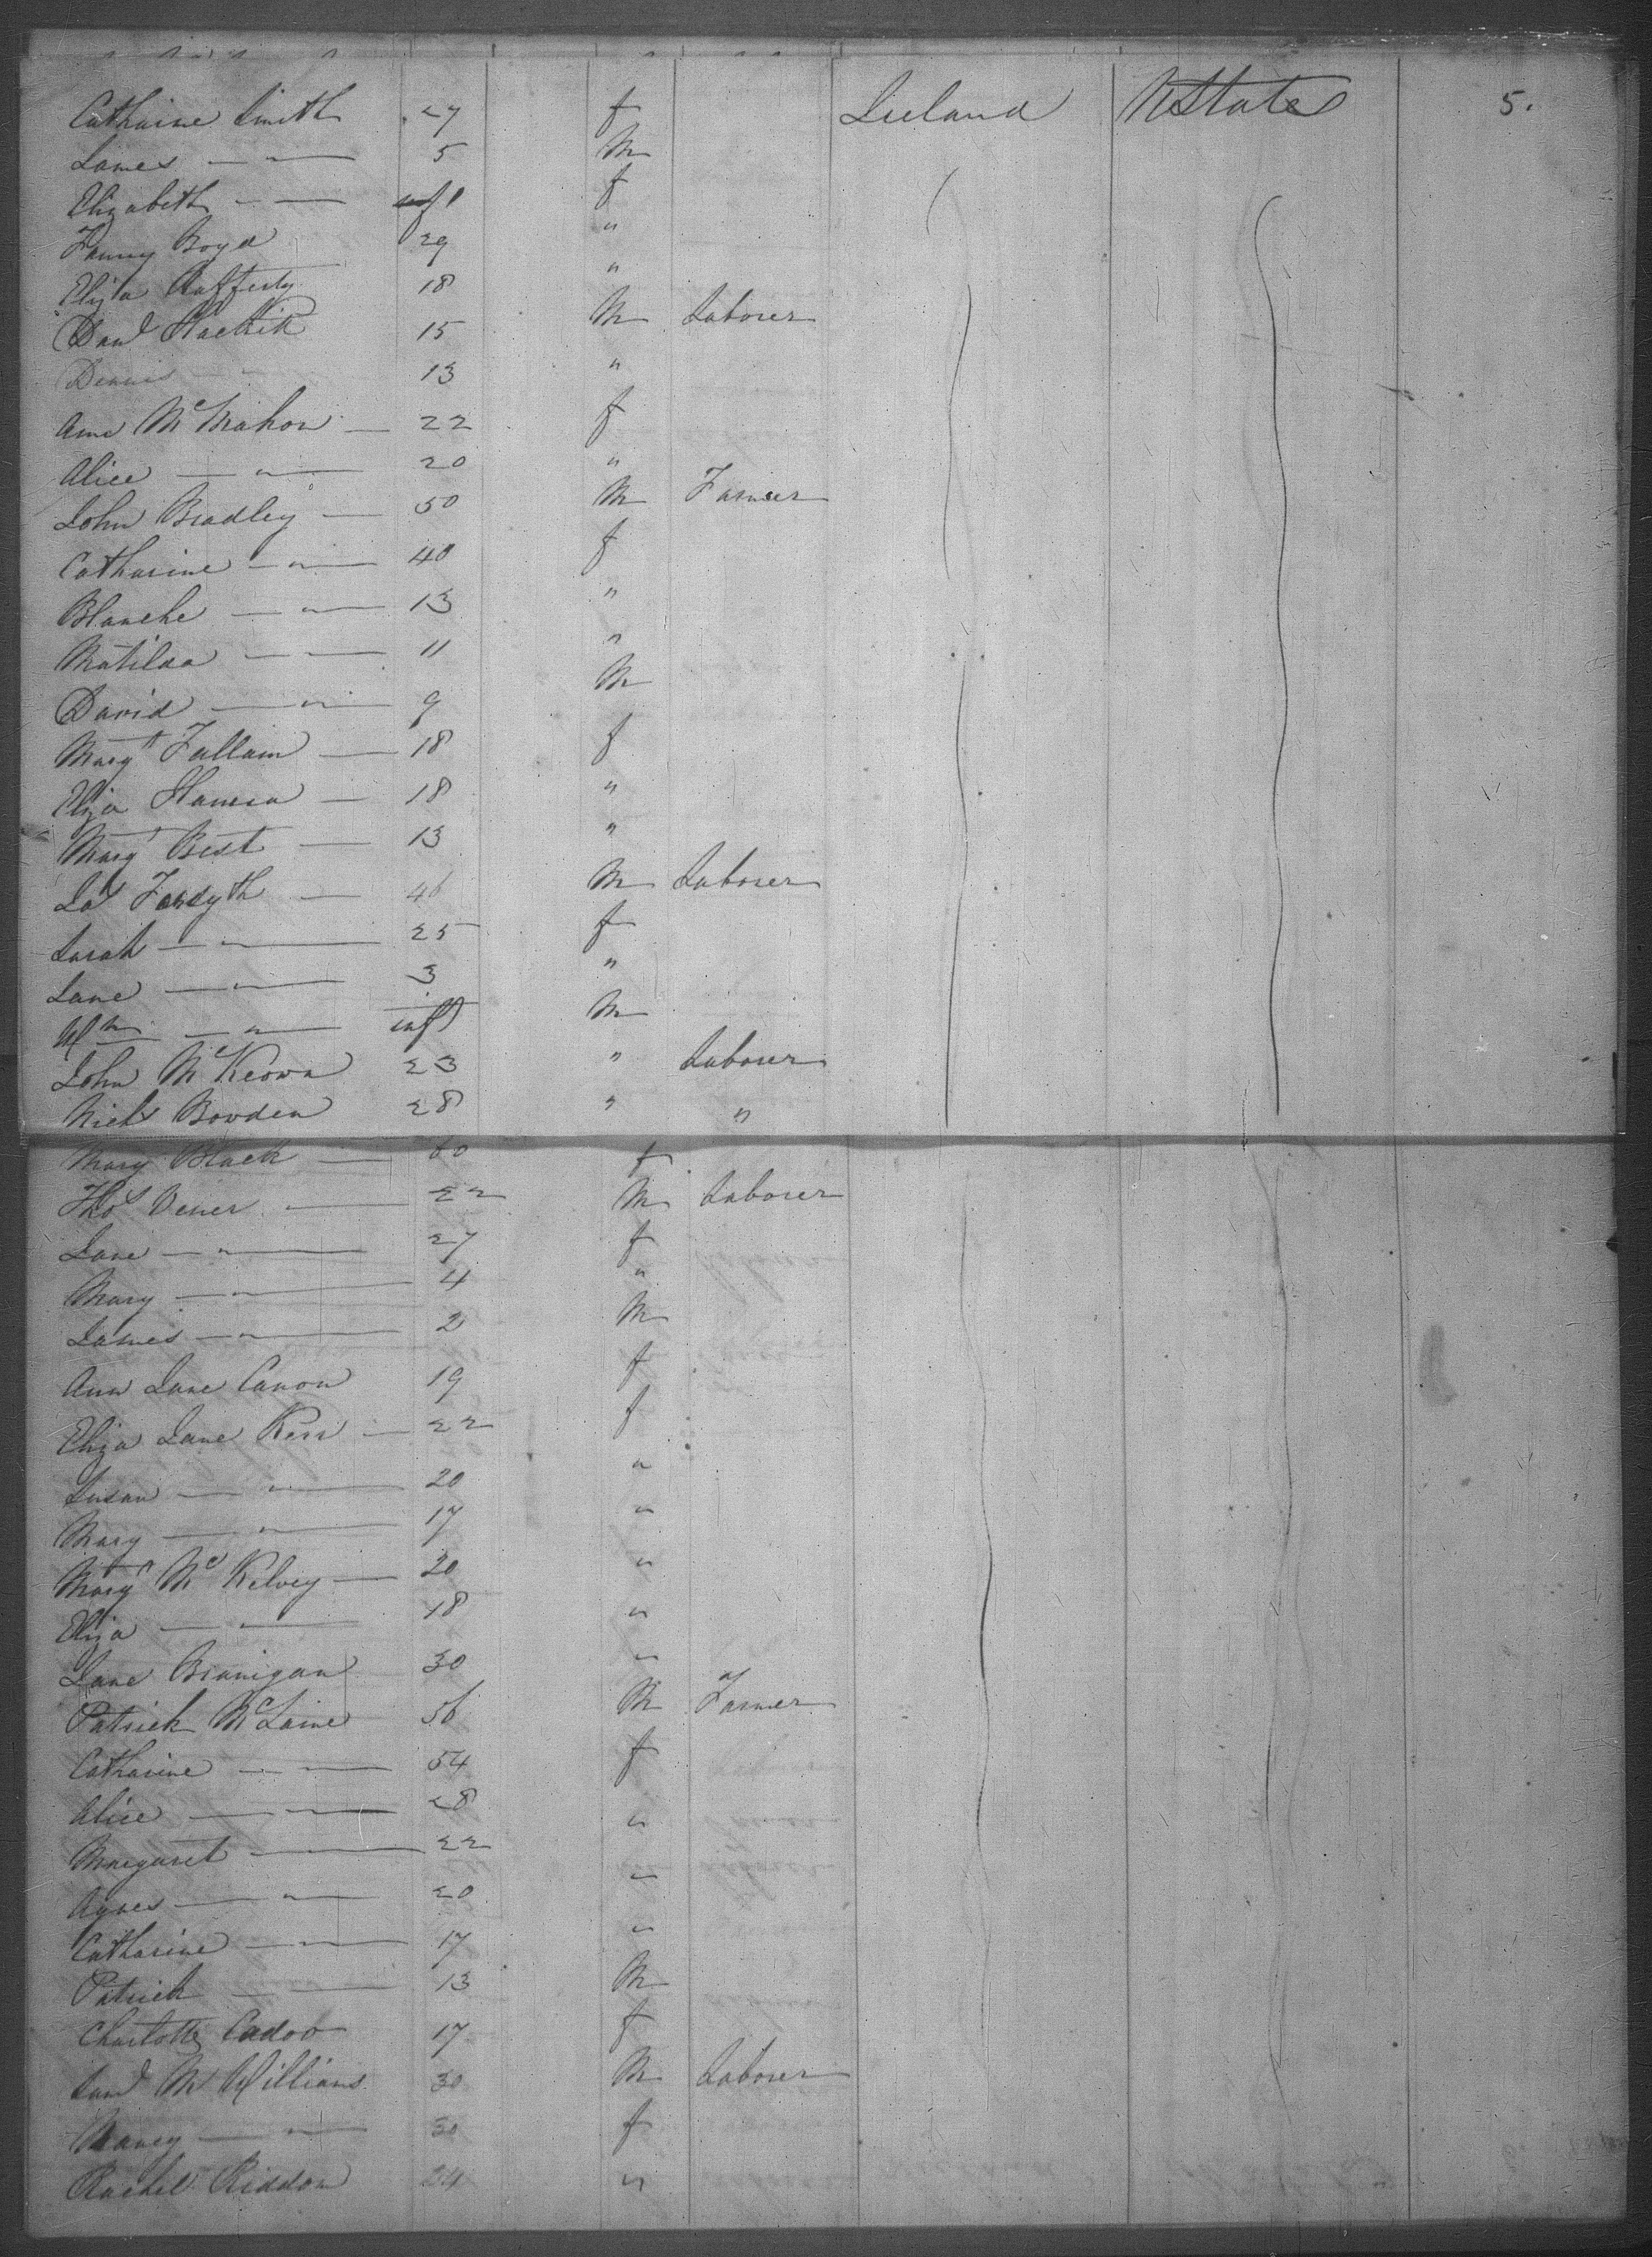 Catharine Smith 27 f Ireland U State 5.
James — " — 5 M
Elizabeth — " — inft f
Fanny Boyd 29 "
Eliza Rafferty 18 "
Danl 15 M Laborer
Dennis — " 13 "
Ann McMahon — 22 f
Alice — " — 20 "
John Bradley — 50 M Farmer
Catharine — " — 40 f
Blanche — " — 13 "
Matilda — " — 11 "
David — " — 9 M
Margt Fullam — 18 f
Eliza — 18 "
Margt Best — 13 "
Jas Forsyth — 46 M Laborer
Sarah — " — 25 f
Jane — " — 3 "
Wm — " — inft M
John McKeown 23 " Laborer
Nichs Bowden 28 " "
Mary Black — 60 f
Thos Vener — 22 M Laborer
Jane — " — 27 f
Mary — " — 4 "
James — " — 2 M
Ann Jane Canon 19 f
Eliza Jane Kerr — 22 f
Susan — " — 20 "
Mary — " — 17 "
Margt McKelvey — 20 "
Eliza — " — 18 "
Jane Branigan 30 "
Patrick McLaine 56 M Farmer
Catharine — " — 54 f
Alice — " — 28 "
Margaret — " — 22 "
Agnes — " — 20 "
Catharine — " — 17
Patrick — " — 13 M
Charlotte Cadoo 17 f
Saml McWilliams 30 M Laborer
Nancy — " — 30 f
Rachel Riddon 24 "